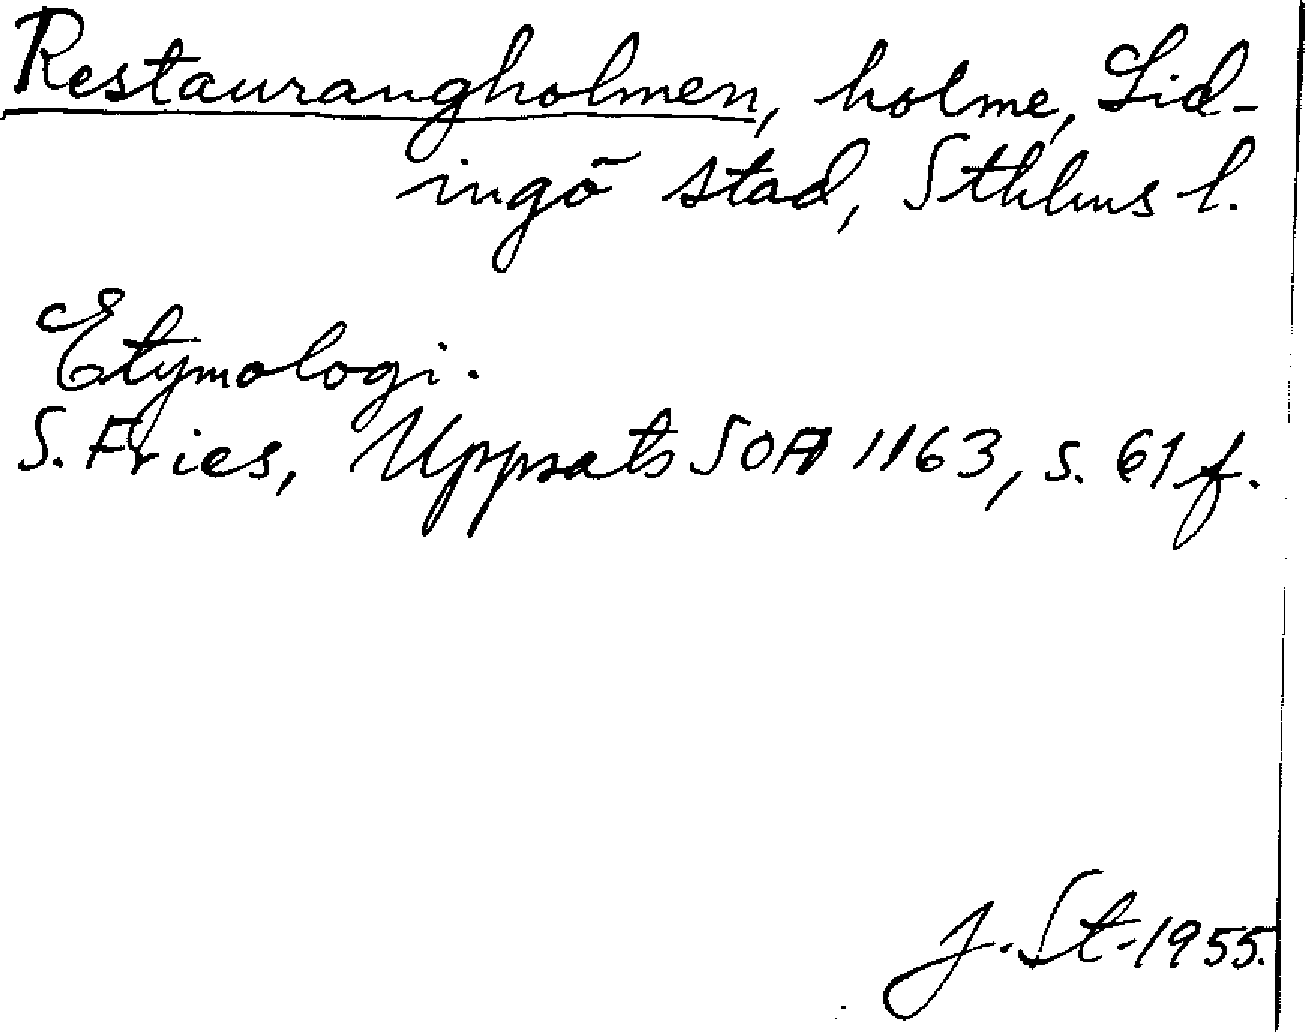 Restaurangholmen, holme, Lid-
ingö stad, Sthlms l.
Etymologi.
S. Fries, Uppsats SOA 1163, s. 61 f.
J. St. 1955.